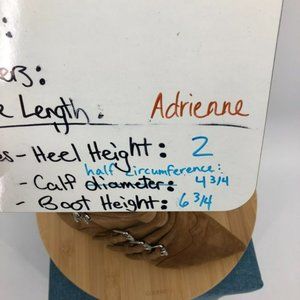 :
ers:
e Length. Adrienne
es - Heel Height: 2
half circumference:
- Calf diameter: 4 3/4
- Boot Height: 6 3/4